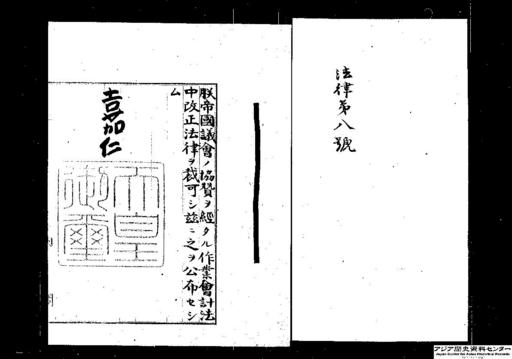 法律第八號
朕帝國議會ノ協贊ヲ經タル作業會計法
中改正法律ヲ裁可シ茲ニ之ヲ公布セシ
ム
嘉仁
天皇
御璽
アジア歴史資料センター
Japan Center for Asian Historical Records